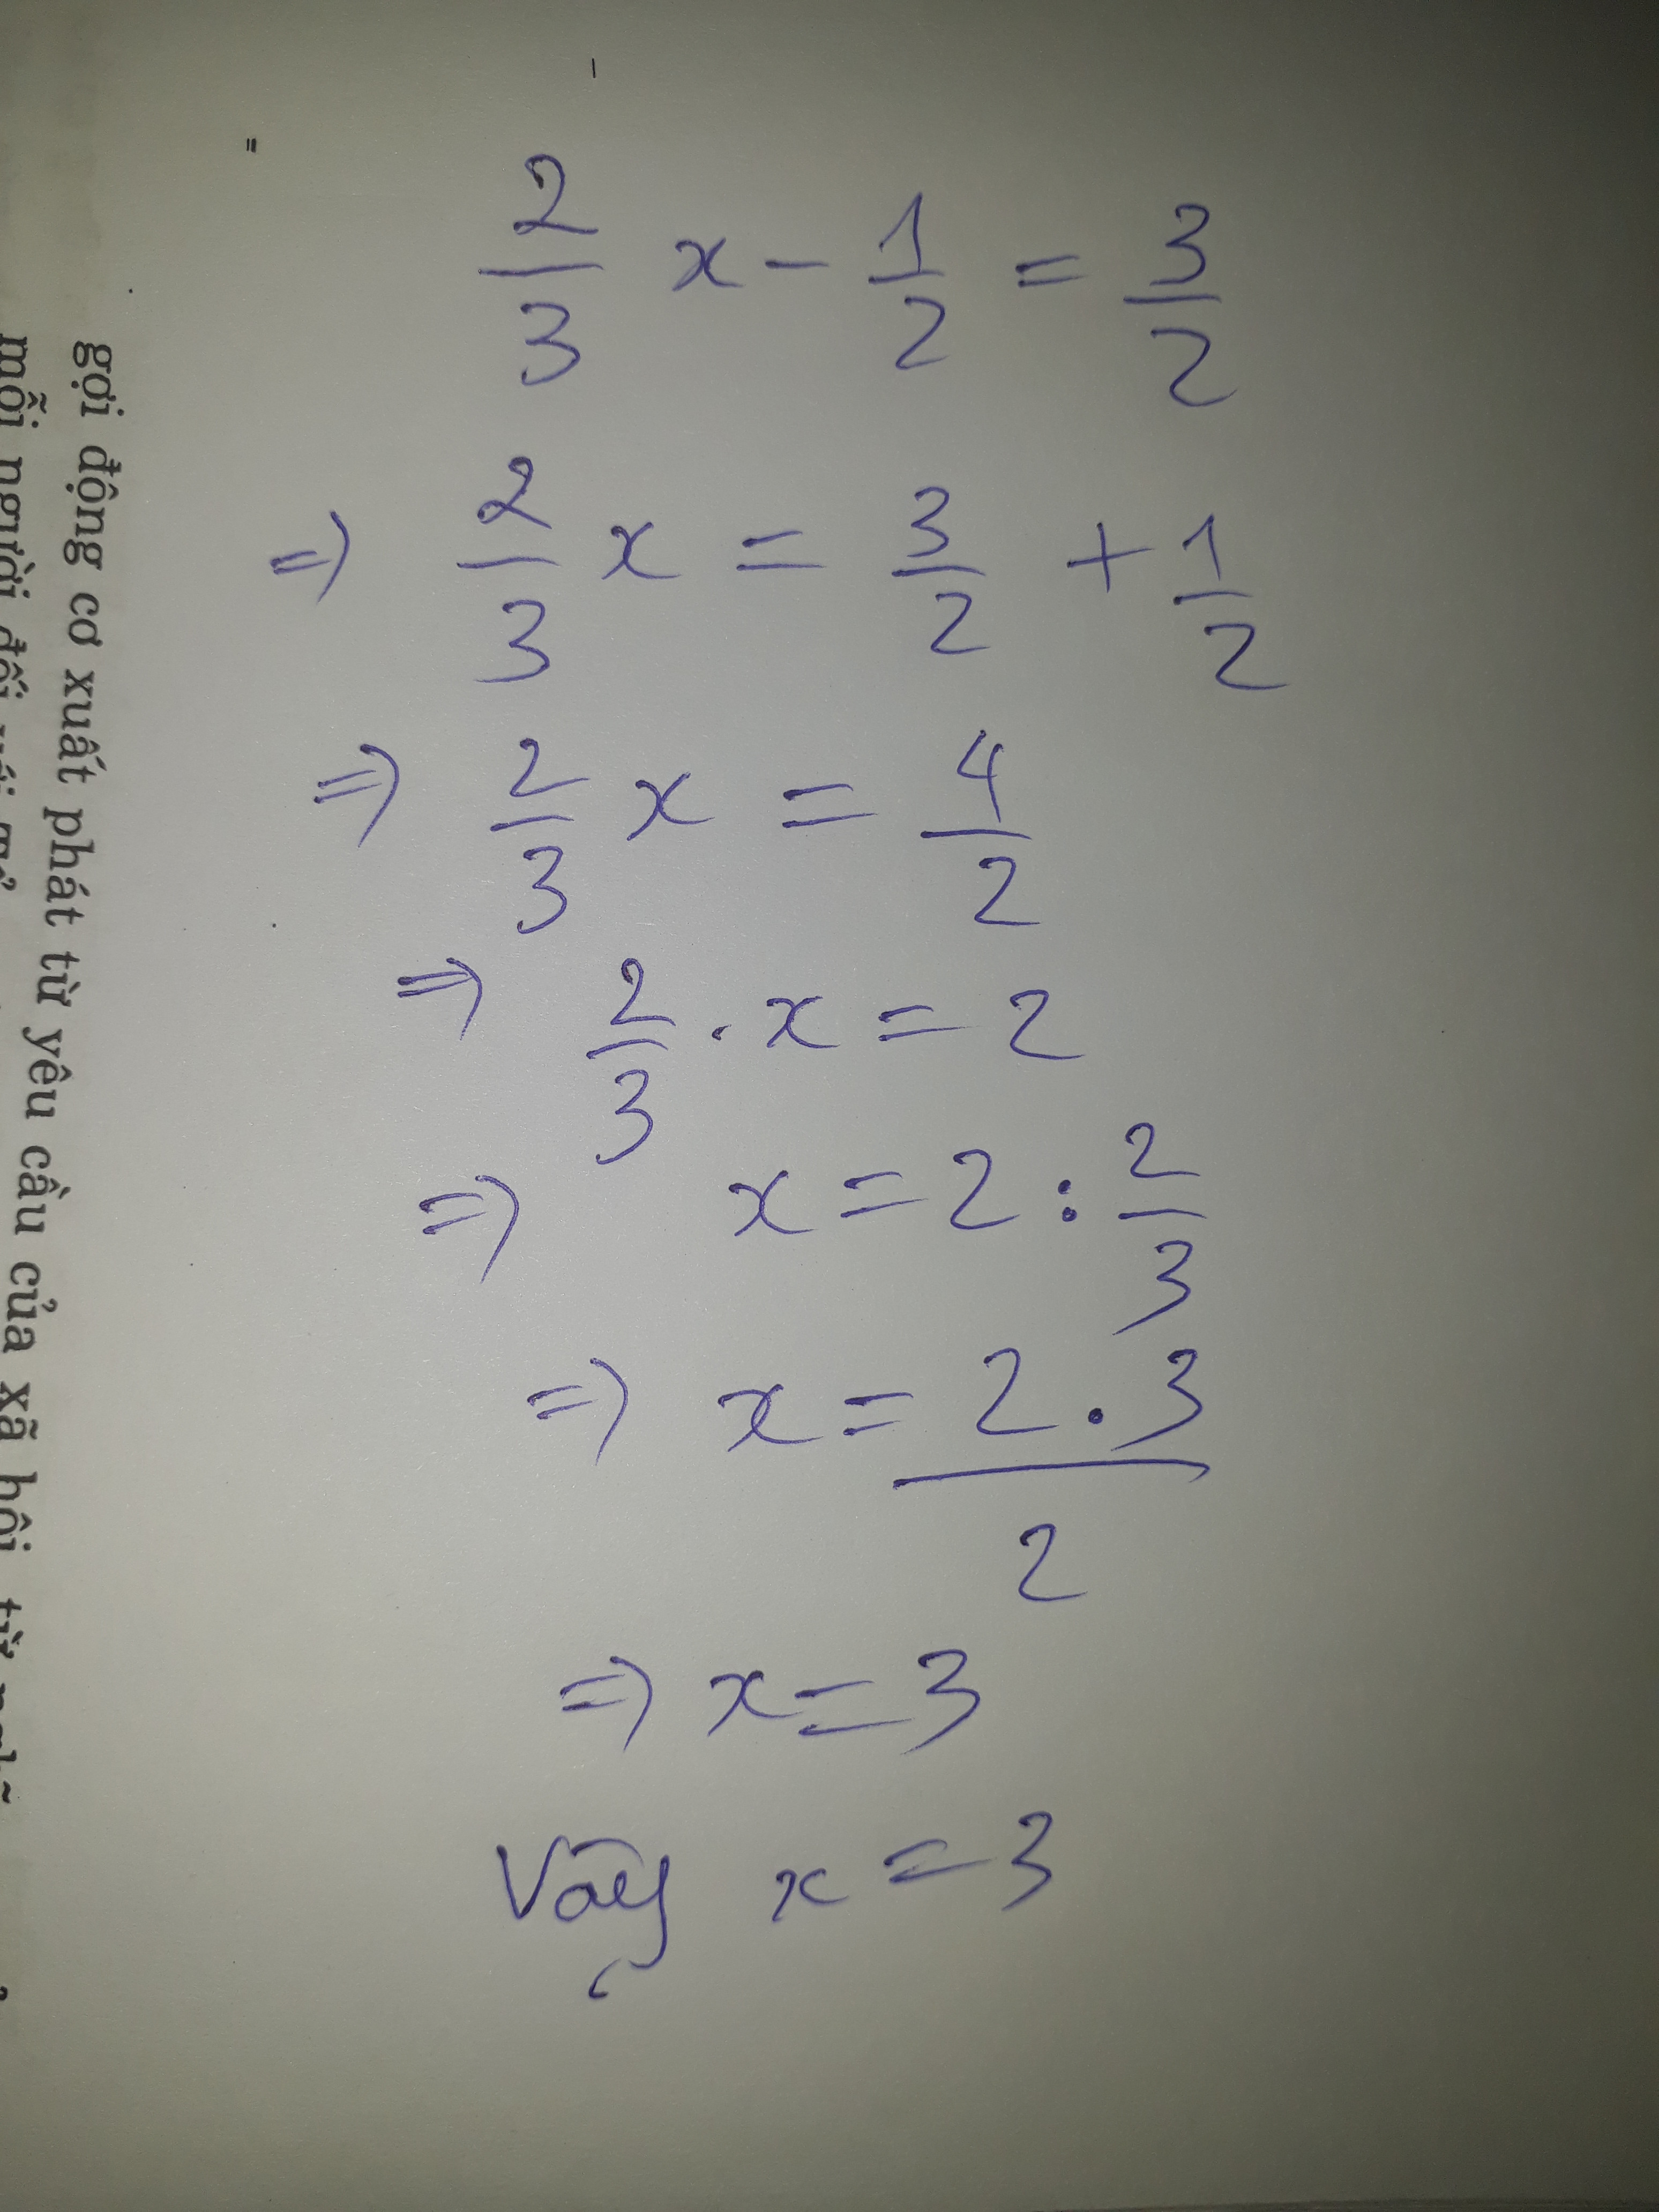 2/3 x - 1/2 = 3/2
=> 2/3 x = 3/2 + 1/2
=> 2/3 x = 4/2
=> 2/3 . x = 2
=> x = 2 : 2/3
=> x = 2 . 3 / 2
=> x = 3
Vậy x = 3
gợi động cơ xuất phát từ yêu cầu của xã hội
mỗi người đối với